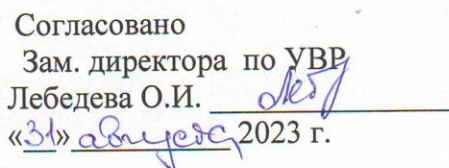 Согласовано
Зам. директора по УВР
Лебедева О.И.
«31» августа 2023 г.